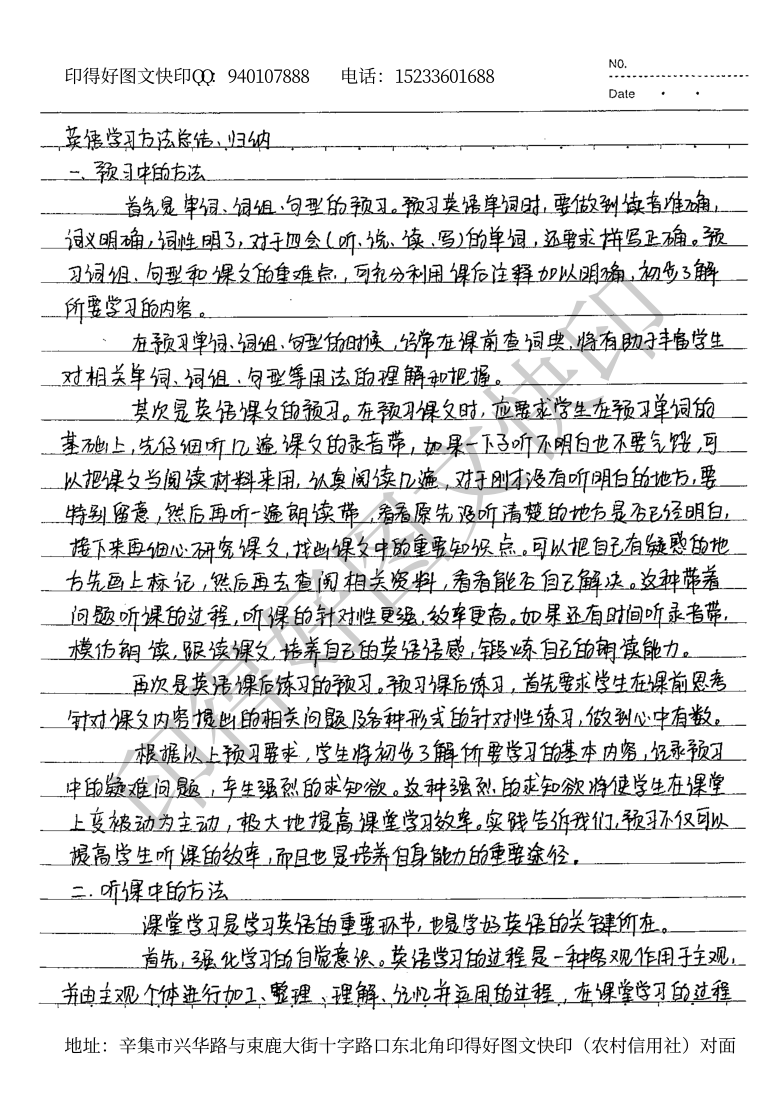 印得好图文快印QQ：940107888 电话：15233601688
NO.
Date
英语学习方法总结、归纳
一、预习中的方法
首先是单词、词组、句型的预习。预习英语单词时，要做到读音准确，
词义明确，词性明了，对于四会（听、说、读、写）的单词，还要求拼写正确。预
习词组、句型和课文的重难点，可充分利用课后注释加以明确，初步了解
所要学习的内容。
在预习单词、词组、句型的时候，经常在课前查词典，将有助于丰富学生
对相关单词、词组、句型等用法的理解和把握。
其次是英语课文的预习。在预习课文时，应要求学生在预习单词的
基础上，先仔细听几遍课文的录音带，如果一下子听不明白也不要气馁，可
以把课文当阅读材料来用，认真阅读几遍，对于刚才没有听明白的地方，要
特别留意，然后再听一遍朗读带，看看原先没听清楚的地方是否已经明白，
接下来再细心研究课文，找出课文中的重要知识点。可以把自己有疑惑的地
方先画上标记，然后再去查阅相关资料，看看能否自己解决。这种带着
问题听课的过程，听课的针对性更强，效率更高。如果还有时间听录音带，
模仿朗读，跟读课文，培养自己的英语语感，锻炼自己的朗读能力。
再次是英语课后练习的预习。预习课后练习，首先要求学生在课前思考
针对课文内容提出的相关问题及各种形式的针对性练习，做到心中有数。
根据以上预习要求，学生将初步了解所要学习的基本内容，记录预习
中的疑难问题，产生强烈的求知欲。这种强烈的求知欲将使学生在课堂
上变被动为主动，极大地提高课堂学习效率。实践告诉我们，预习不仅可以
提高学生听课的效率，而且也是培养自身能力的重要途径。
二．听课中的方法
课堂学习是学习英语的重要环节，也是学好英语的关键所在。
首先，强化学习的自觉意识。英语学习的过程是一种客观作用于主观，
并由主观个体进行加工、整理、理解、记忆并运用的过程，在课堂学习的过程
印得好图文快印
地址：辛集市兴华路与束鹿大街十字路口东北角印得好图文快印（农村信用社）对面